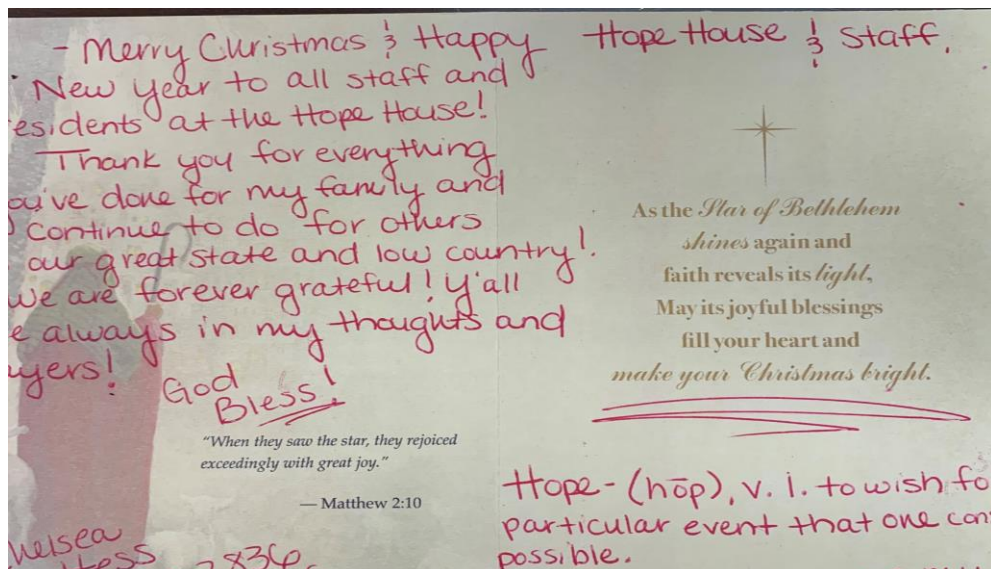 - Merry Christmas & Happy
New Year to all staff and
esidents at the Hope House!
Thank you for everything
ou've done for my family and
continue to do for others
our great state and low country!
we are forever grateful! Y'all
e always in my thoughts and
yers!
God
Bless!
"When they saw the star, they rejoiced
exceedingly with great joy."
— Matthew 2:10
helsea
Hope House & Staff,
As the Star of Bethlehem
shines again and
faith reveals its light,
May its joyful blessings
fill your heart and
make your Christmas bright.
Hope - (hōp), v. i. to wish fo
particular event that one con
possible.